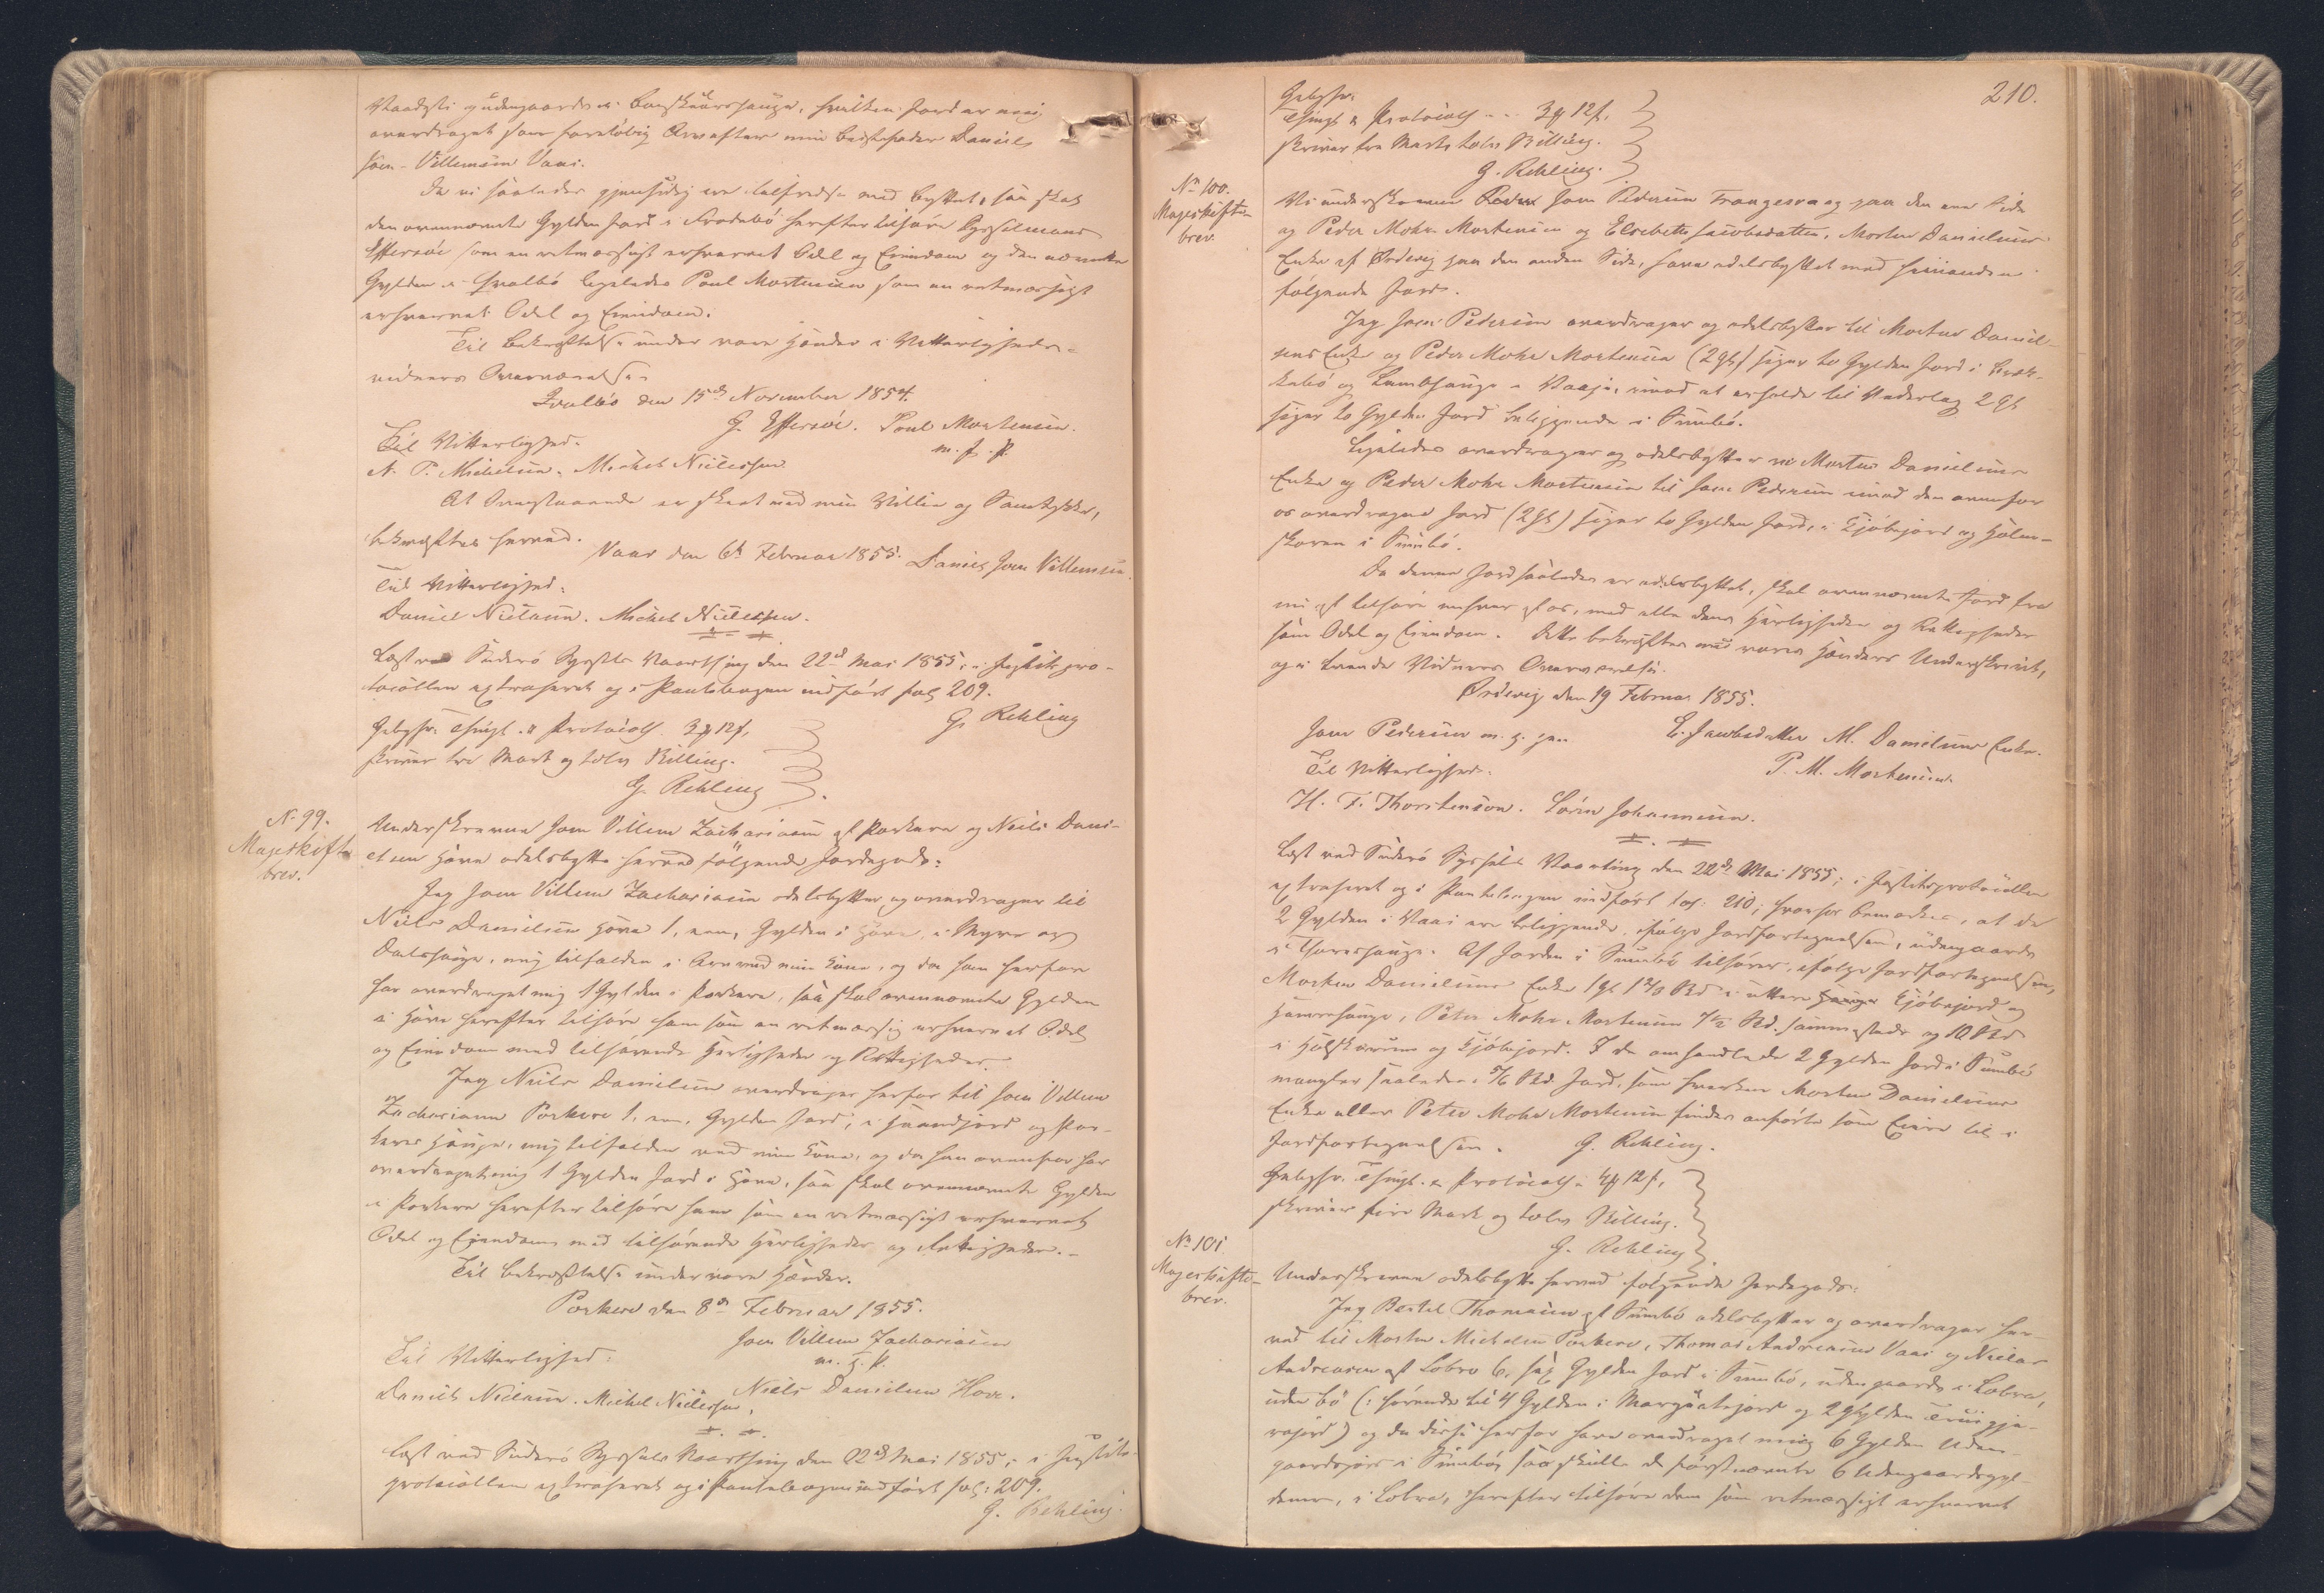 overdraget som foreløbig Arv efter min Bestefader Daniel
Joen Villumsen Vaai.
Da vi saaledes gjensidig ere tilfredse med Byttet, saa skal
den ovennævnte Gylden Jord i Frodebö herefter tilhøre Sysselmand
Effersöe som en retmæssigt erhvervet Odel og Eiendom og den nævnte
Gylden i Hvalbö ligeledes Poul Mortensen som en retmæssigt
erhvervet Odel og Eiendom.
Til Bekræftelse under vore Hænder i Vitterligheds-
vidners Overværelse
Qvalbö den 15de November 1854.
G. Effersöe. Poul Mortensen.
m. f. P.
Til Vitterlighed.
N. P. Michelsen. Michel Nielessen.
At Ovenstaaende er skeet med min Villie og Samtykke,
bekræftes herved.
Vaai den 6te Februar 1855. Daniel Joen Villumsen.
Til Vitterlighed:
Daniel Nielsen. Michel Nielessen.
Læst ved Suderö Syssels Vaarthing den 22de Mai 1855; i Justitspro-
tocollen extraheret og i Pantebogen indført fol. 209.
G. Rehling
Gebyhr: Thingl. & Protocoll. 3 12
skriver tre Mark og tolv Skilling.
G. Rehling
No 99.
Mageskifte
brev.
Underskrevne Joen Villum Zachariasen af Porkere og Niels Dani-
elsen Hove odelsbytte herved følgende Jordegods:
Jeg Joen Villum Zachariasen odelsbytter og overdrager til
Niels Danielsen Hove 1, een, Gylden i Hove, i Myre og
Dalshauge, mig tilfalden i Arv med min Kone, og da han herfor
har overdraget mig 1 Gylden i Porkere, saa skal ovennævnte Gylden
i Hove herefter tilhøre ham som en retmæssig erhvervet Odel
og Eiendom med tilhørende Herligheder og Rettigheder.
Jeg Niels Danielsen overdrager herfor til Joen Villum
Zachariasen Porkere 1, een, Gylden Jord, i Haandjord og Por-
keres Hauge, mig tilfalden ved min Kone, og da han ovenfor har
overdraget mig 1 Gylden Jord i Hove, saa skal ovennævnte Gylden
i Porkere herefter tilhøre ham som en retmæssigt erhvervet
Odel og Eiendom med tilhørende Herligheder og Rettigheder.
Til Bekræftelse under vore Hænder.
Porkere den 8de Februar 1855.
Joen Villum Zachariasen
m. f. P.
Niels Danielsen Hove.
Til Vitterlighed:
Daniel Nielsen. Michel Nielessen.
Læst ved Suderö Syssels Vaarthing den 22de Mai 1855; i Justits-
protocollen extraheret og i Pantebogen indført fol: 209.
G. Rehling
210.
Gebyhr:
Thingl. & Protocoll 3 12
skriver tre Mark tolv Skilling.
G. Rehling.
No 100.
Mageskifte-
brev.
Vi underskrevne Joen Pedersen Frangesvaag paa den ene Side
og Peder Mohr Mortensen og Elsebeth Jacobsdatter, Morten Danielsens
Enke af Ördevig paa den anden Side, have odelsbyttet med hinanden
følgende Jord.
Jeg Joen Pedersen overdrager og odelsbytter til Morten Daniel-
sens Enke og Peder Mohr Mortensen (2 Gl) siger to Gylden Jord i
og Lambhauge i Vaaje, imod at erholde til Vederlag 2 Gl
siger to Gylden Jord beliggende i Sumbö.
Ligeledes overdrager og odelsbytter vi Morten Danielsens
Enke og Peder Mohr Mortensen til Joen Pedersen imod den ovenfor
os overdragne Jord (2 Gl) siger to Gylden Jord, i Kjöbejord og
i Sumbö.
Da denne Jord saaledes er odelsbyttet, skal ovennævnte Jord fra
nu af tilhøre enhver af os, med alle dens Herligheder og Rettigheder
som Odel og Eiendom. Dette bekræftes med vores Hænders Underskrivt,
og i tvende Vidners Overværelse.
Ördevig den 19 Februar 1855.
Joen Pedersen m. f. P. E. Jacobsdatter M. Danielsens Enke.
P. M. Mortensen.
Til Vitterlighed.
H. F. Thorstensen. Sören Johannesen.
Læst ved Suderö Syssels Vaarting den 22de Mai 1855; i Justitsprotocollen
extraheret og i Pantebogen indført fol: 210; hvorfor bemærkes, at de
2 Gylden i Vaai ere beliggende, ifølge Jordfortegnelsen, udengaards
i Af Jorden i Sumbö tilhører, ifølge Jordfortegnelsen,
Morten Danielsens Enke 1 Gl 1 2/3 Skd i Kjöbejord og
Hamrehauge, Peter Mohr Mortensen Skd. sammesteds og 10 Skd
i og Kjöbejord. I de omhandlede 2 Gylden Jord i Sumbö
mangler saaledes 5/6 Skd. Jord, som hverken Morten Danielsens
Enke eller Peter Mohr Mortensen findes anførte som Eiere til i
Jordfortegnelsen. G. Rehling.
Gebyhr. Thingl. & Protocoll 4 12
skriver fire Mark og tolv Skilling.
G. Rehling
No 101.
Mageskifte-
brev.
Underskrevne odelsbytte herved følgende Jordegods:
Jeg Bertel Thomasen af Sumbö odelsbytter og overdrager her-
ved til Morten Michelsen Porkere, Thomas Andreasen Vaai og Niclas
Andreasen af Lobro 6, sex Gylden Jord i Sumbö, udengaards i Lobra,
uden bö (: hørende til 4 Gylden i og 2 Gylden
) og da disse herfor have overdraget mig 6 Gylden Uden-
gaardsjord i Sumbö, saa skulle de førstnævnte 6 Udengaardsgyl-
dener, i Lobra, herefter tilhøre dem som retmæssigt erhvervet